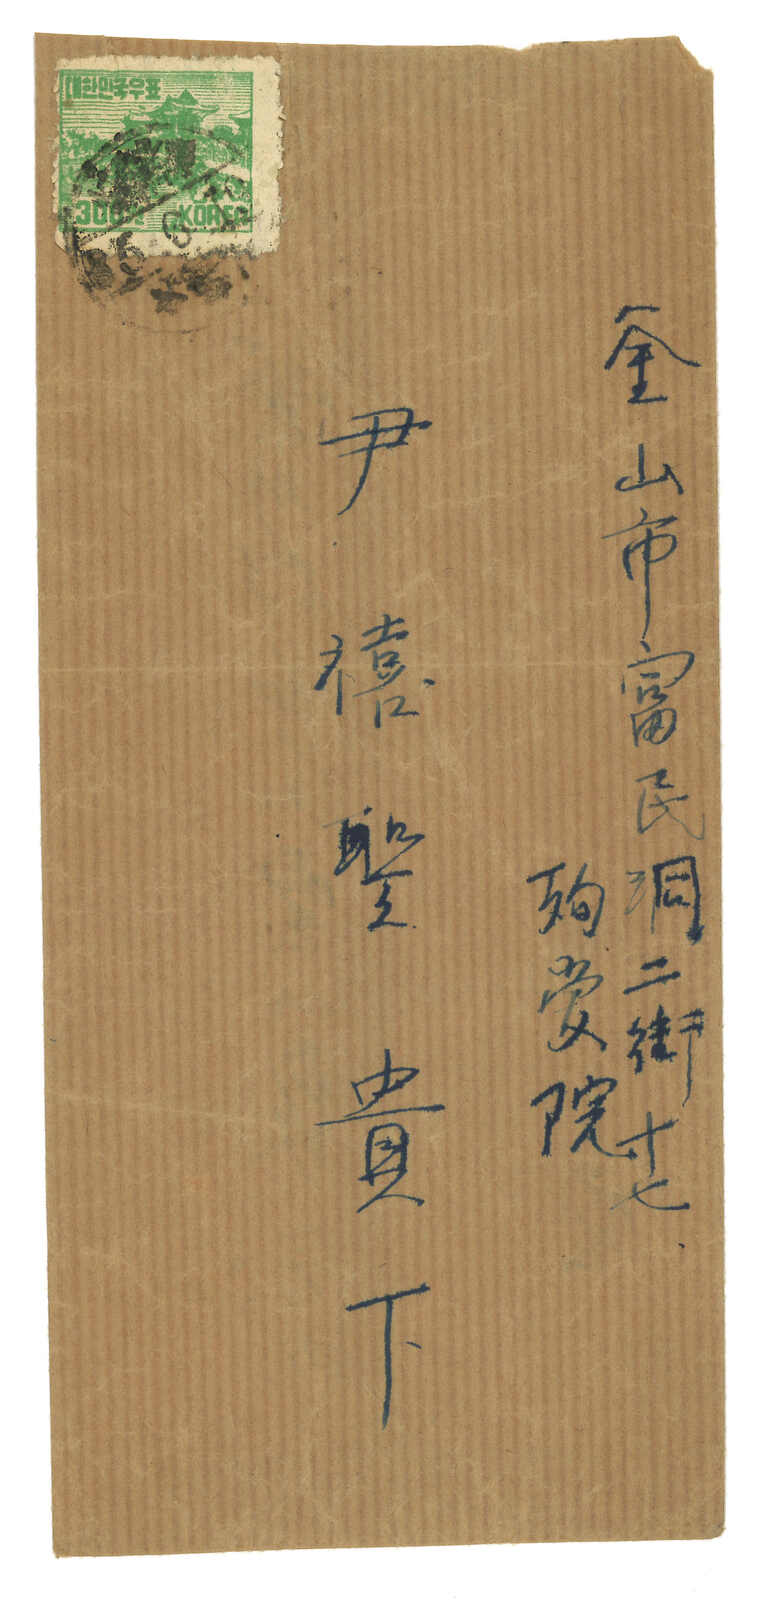 대한민국우표
300
KOREA
釜山市富民洞二街十七
殉愛院
尹禧聖貴下